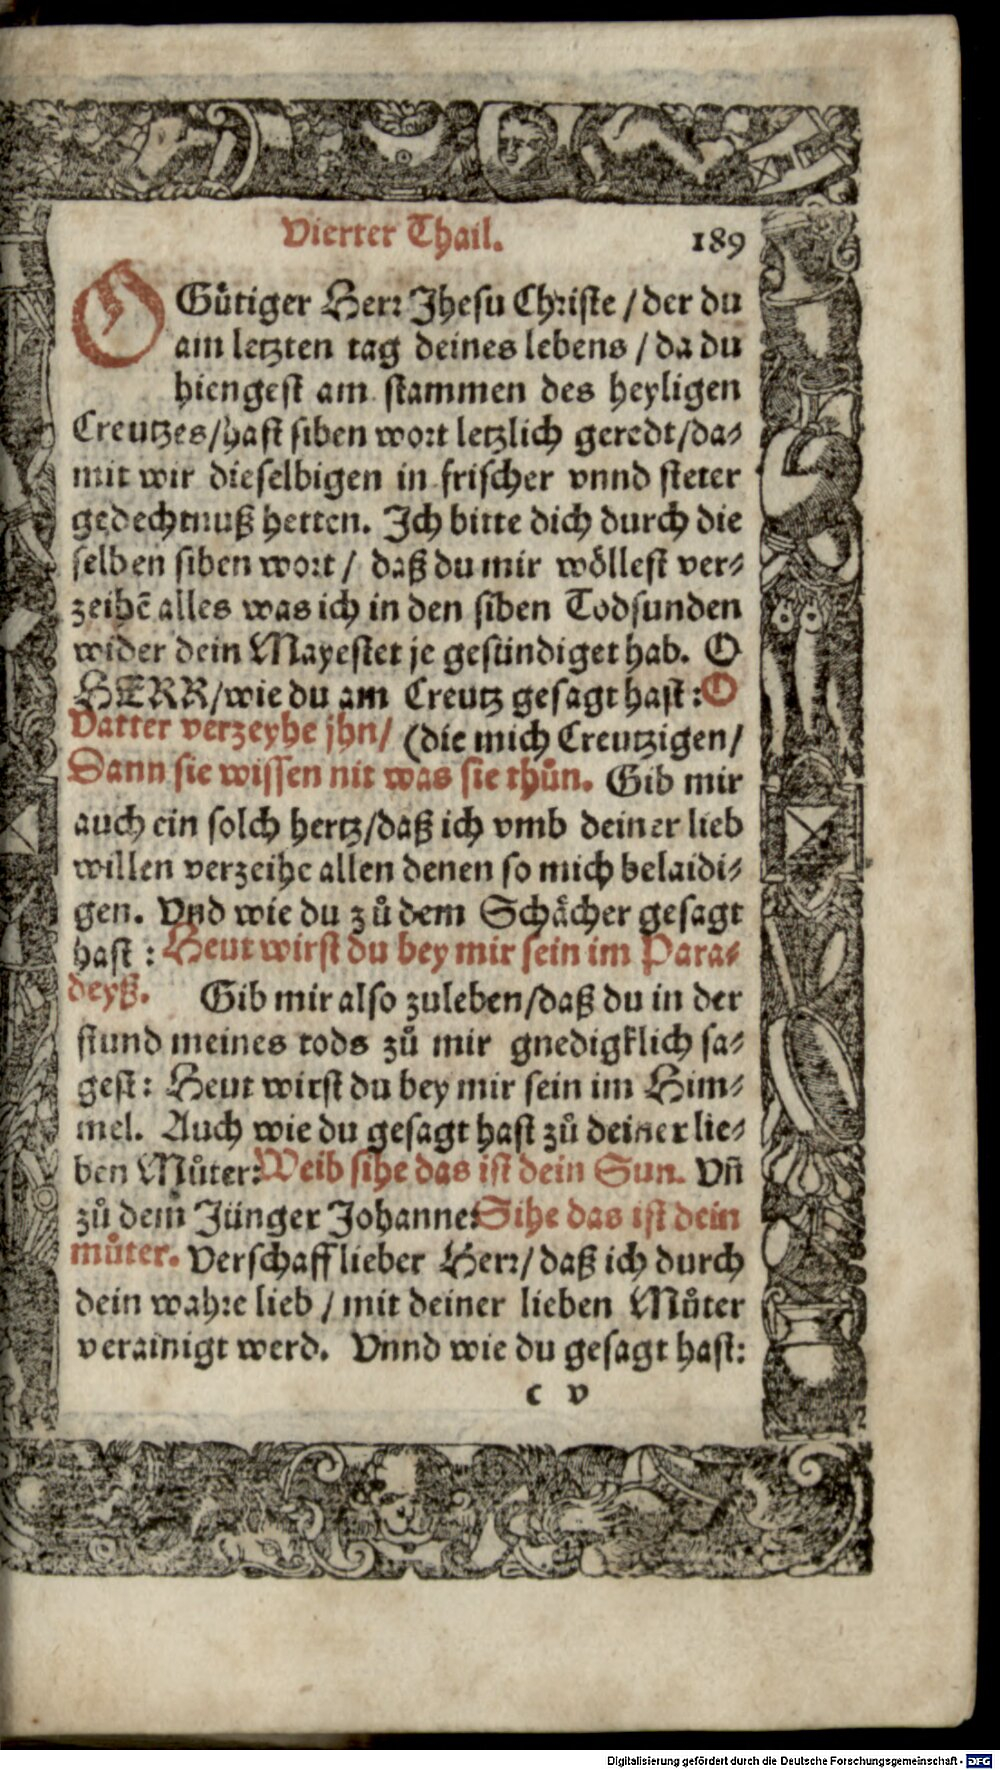 Vierter Thail. 189
O Gůtiger Herr Jhesu Christe / der du
am letzten tag deines lebens / da du
hiengest am stammen des heyligen
Creutzes/hast siben wort letzlich geredt/da-
mit wir dieselbigen in frischer vnnd steter
gedechtnuß hetten. Ich bitte dich durch die
selben siben wort / daß du mir wöllest ver-
zeihē alles was ich in den siben Todsunden
wider dein Mayestet je gesündiget hab. O
HERR/wie du am Creutz gesagt hast: O
Vatter verzeyhe jhn/ (die mich Creutzigen/
Dann sie wissen nit was sie thůn. Gib mir
auch ein solch hertz/daß ich vmb deiner lieb
willen verzeihe allen denen so mich belaidi-
gen. Vnd wie du zů dem Schächer gesagt
hast : Heut wirst du bey mir sein im Para-
deyß. Gib mir also zuleben/daß du in der
stund meines tods zů mir gnedigklich sa-
gest: Heut wirst du bey mir sein im Him-
mel. Auch wie du gesagt hast zů deiner lie-
ben Můter: Weib sihe das ist dein Sun. Vñ
zů dem Jünger Johanne: Sihe das ist dein
můter. Verschaff lieber Herr/daß ich durch
dein wahre lieb / mit deiner lieben Můter
verainigt werd. Vnnd wie du gesagt hast:
c v
Digitalisierung gefördert durch die Deutsche Forschungsgemeinschaft - DFG